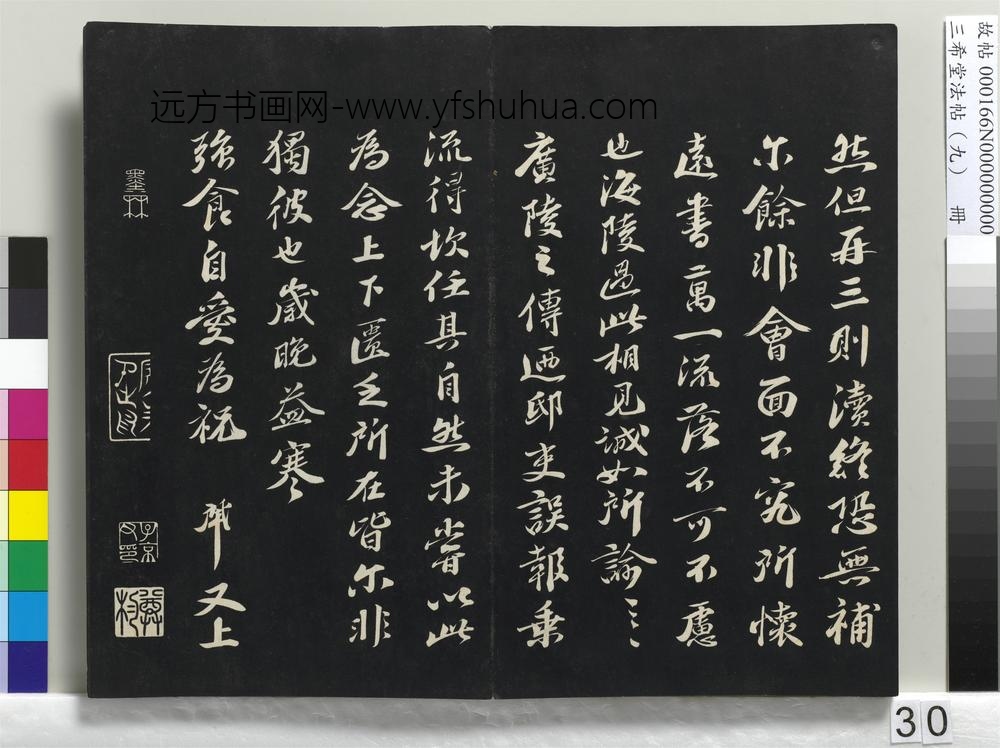 远方书画网-www.yfshuhua.com
然但再三則瀆終恐無補
尓餘非會面不究所懷
遠書萬一流落不可不慮
也海陵過此相見誠如所諭〻〻
廣陵之傳迺邸吏誤報乗
流得坎任其自然未嘗以此
為念上下匱乏所在皆尓非
獨彼也歲晚益寒
強食自愛為祝 軾又上
墨林
子京父印
故帖 000166N000000000
三希堂法帖（九） 冊
30